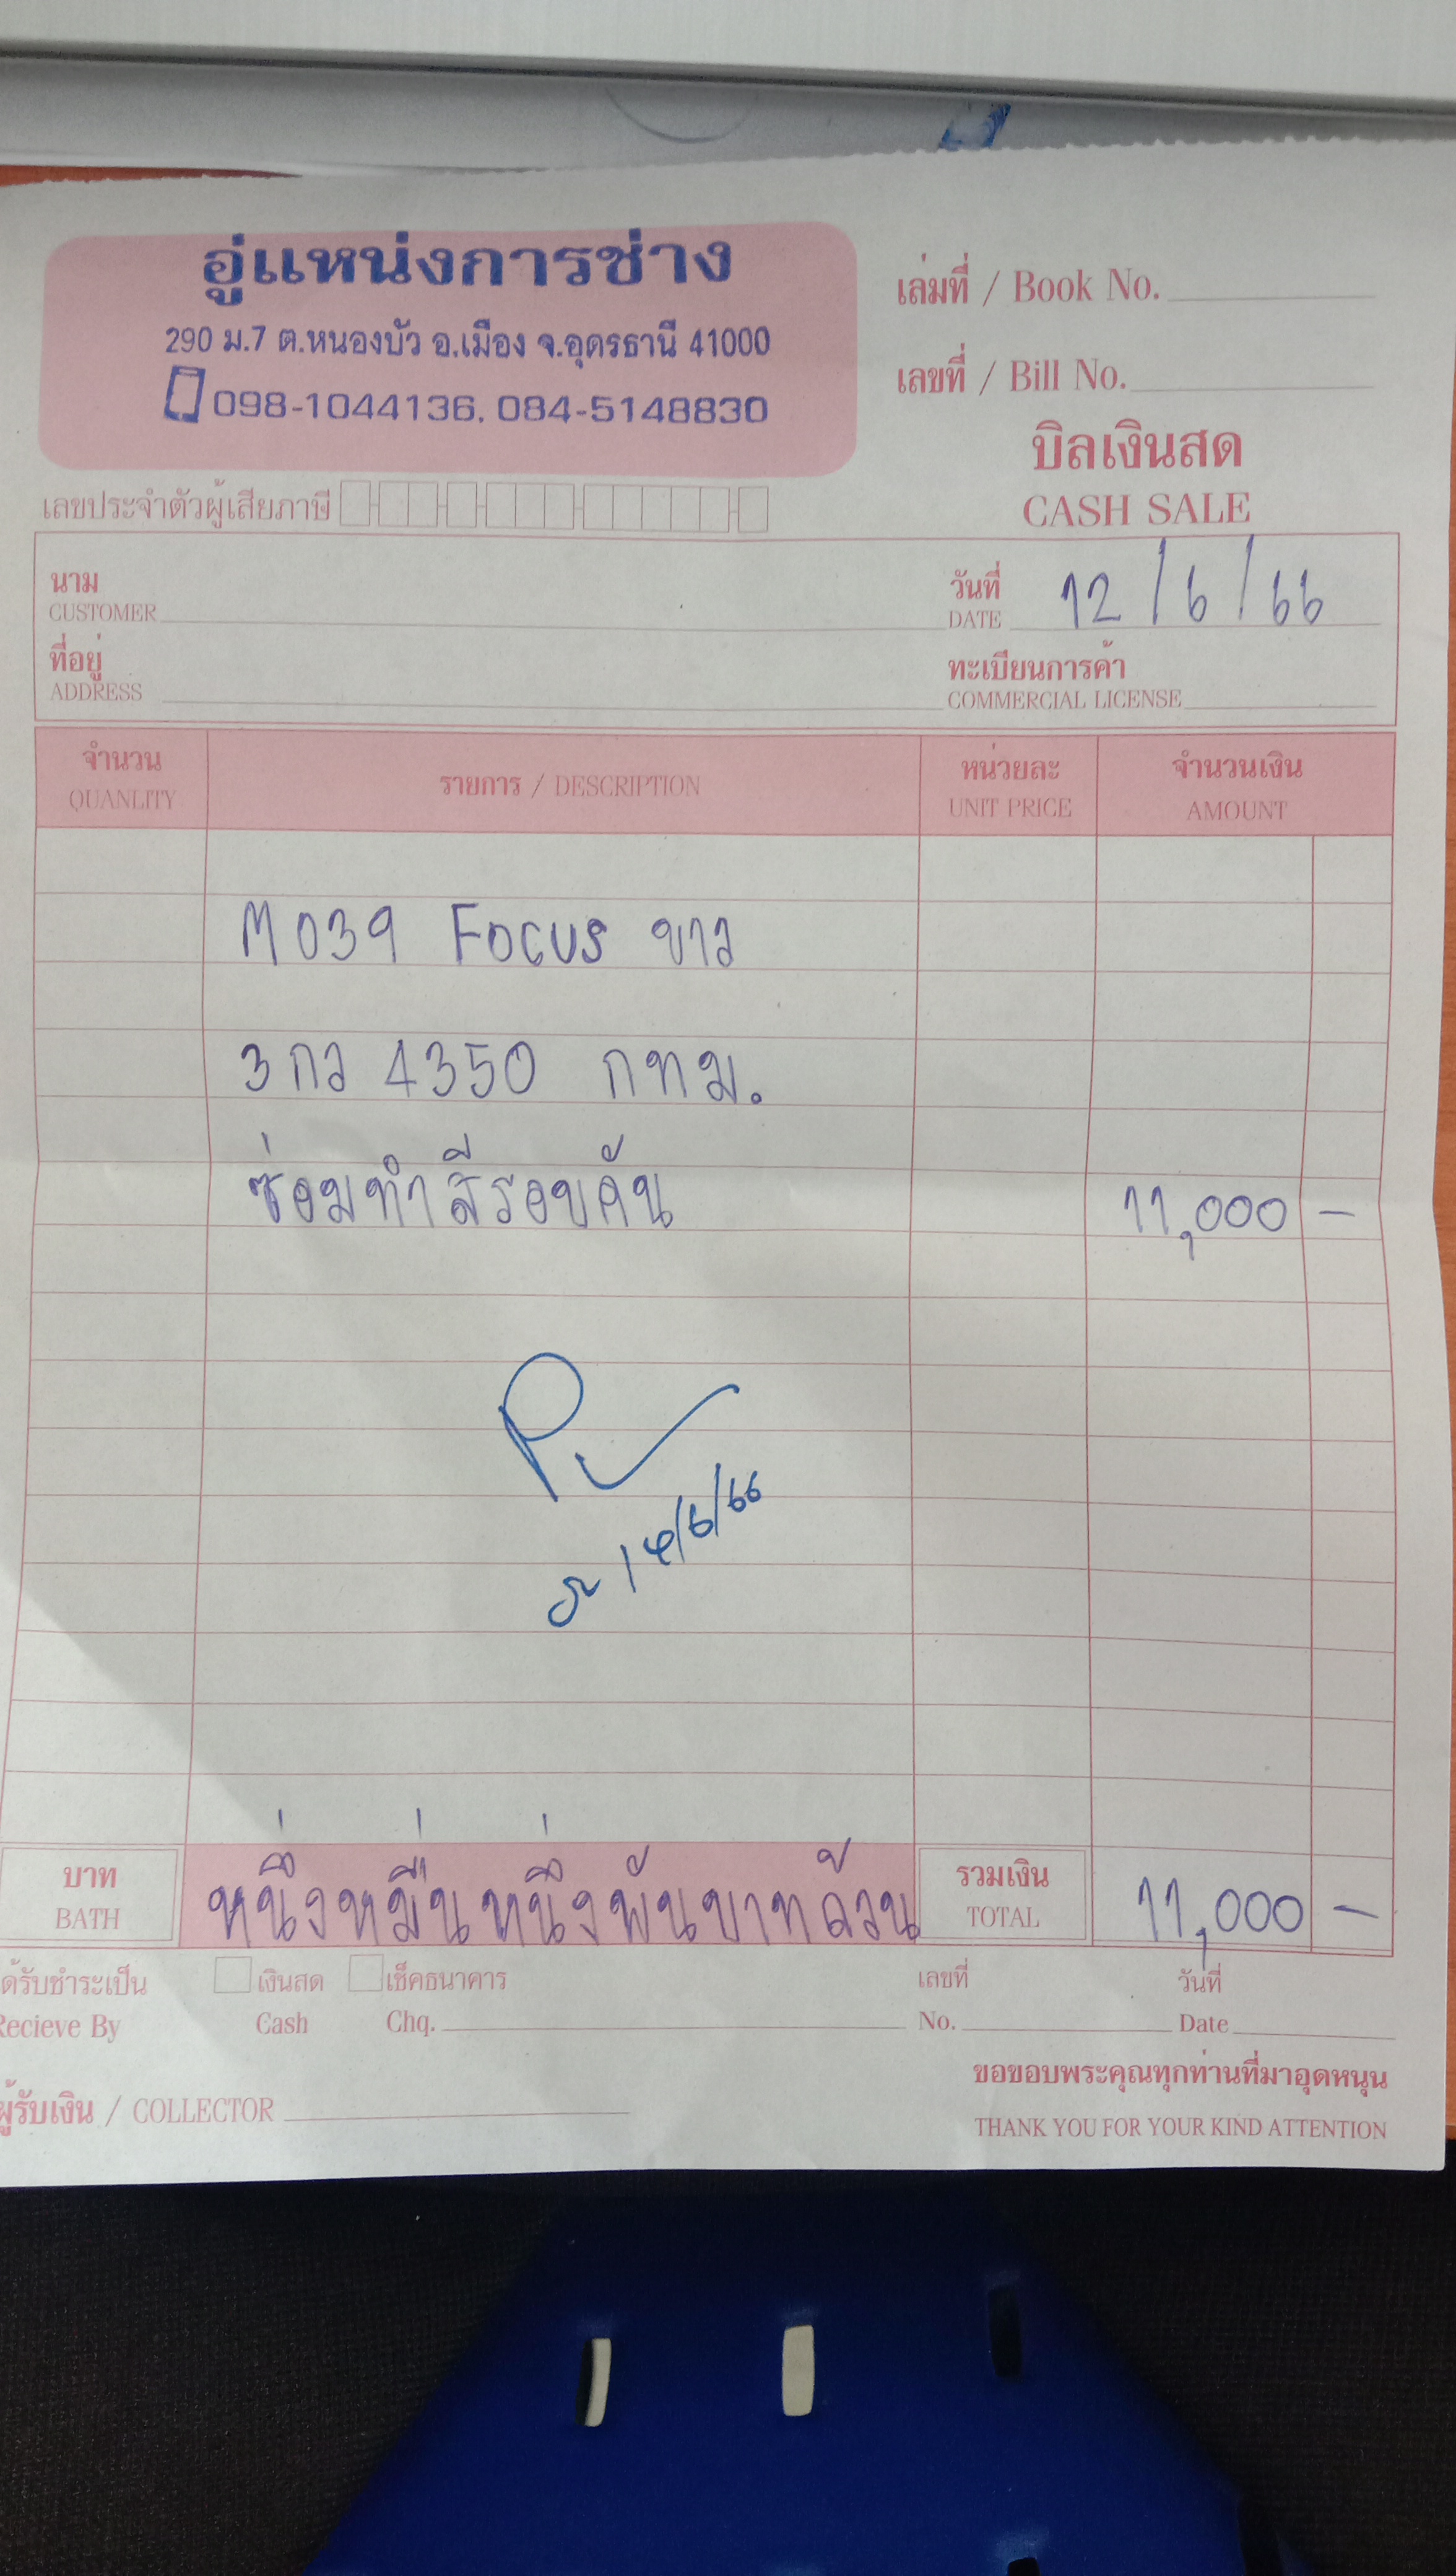 อู่แหน่งการช่าง
290 ม.7 ต.หนองบัว อ.เมือง จ.อุดรธานี 41000
098-1044136, 084-5148830
เล่มที่ / Book No.
เลขที่ / Bill No.
บิลเงินสด
CASH SALE
เลขประจำตัวผู้เสียภาษี
นาม
CUSTOMER
วันที่ 12/6/66
DATE
ที่อยู่
ADDRESS
ทะเบียนการค้า
COMMERCIAL LICENSE
จำนวน รายการ / DESCRIPTION หน่วยละ จำนวนเงิน
QUANLITY UNIT PRICE AMOUNT
M039 Focus ขาว
3กว 4350 กทม.
ซ่อมทำสีรอบคัน 11,000 -
14/6/66
บาท หนึ่งหมื่นหนึ่งพันบาทถ้วน รวมเงิน 11,000 -
BATH TOTAL
ด้รับชำระเป็น เงินสด เช็คธนาคาร เลขที่ วันที่
Recieve By Cash Chq. No. Date
ขอขอบพระคุณทุกท่านที่มาอุดหนุน
ผู้รับเงิน / COLLECTOR
THANK YOU FOR YOUR KIND ATTENTION